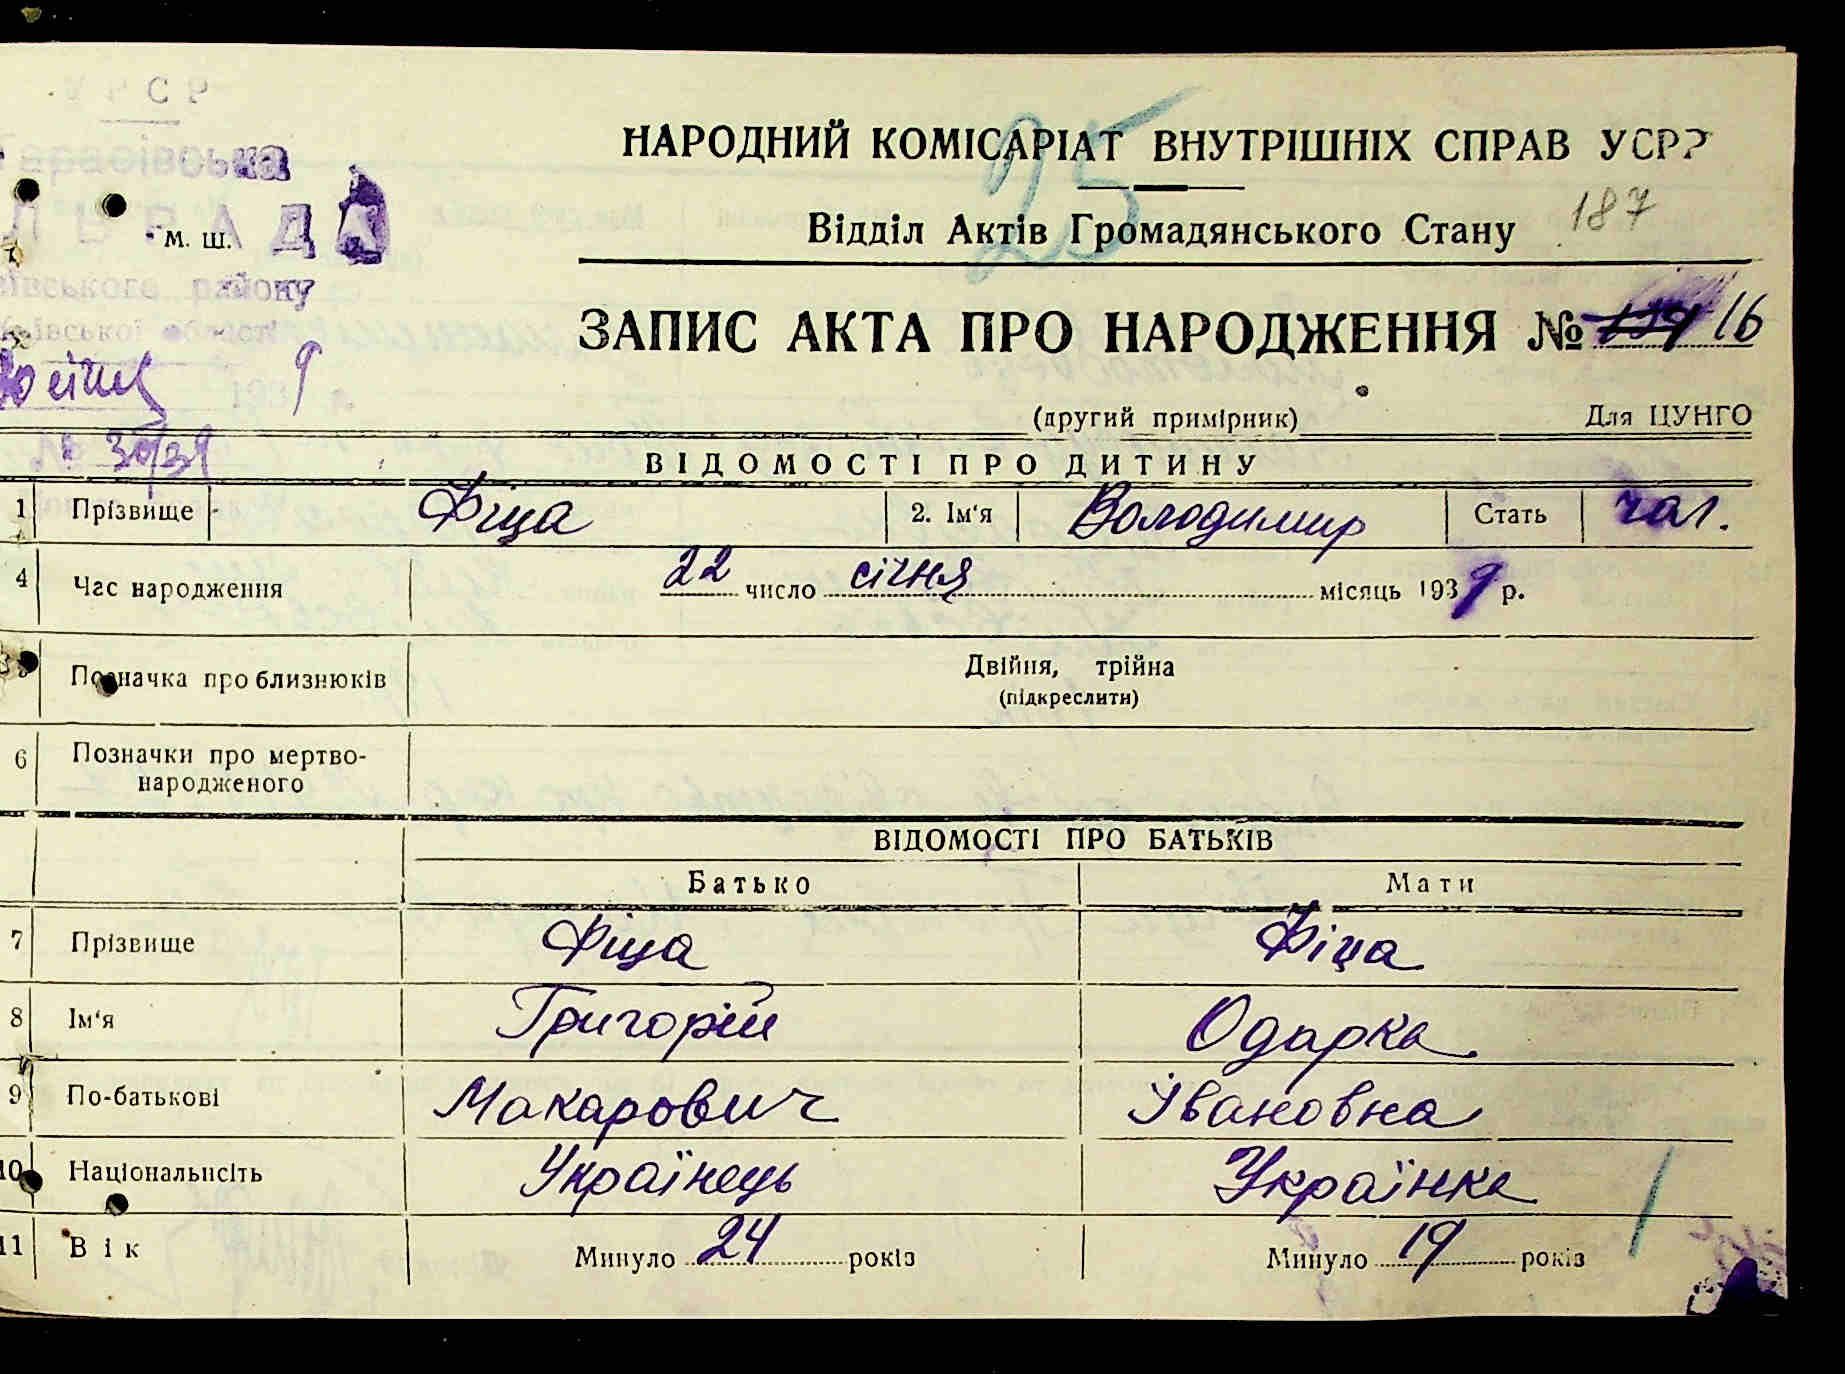 25
НАРОДНИЙ КОМІСАРІАТ ВНУТРІШНІХ СПРАВ УСРР
187
Відділ Актів Громадянського Стану
м. ш.
району
області
ЗАПИС АКТА ПРО НАРОДЖЕННЯ № 16
30 січня 1939 р.
(другий примірник) Для ЦУНГО
№ 30/39
ВІДОМОСТІ ПРО ДИТИНУ
1 Прізвище Фіца 2. Ім'я Володимир Стать чол.
4 Час народження 22 число січня місяць 1939 р.
Позначка про близнюків Двійня, трійна
(підкреслити)
6 Позначки про мертво-
народженого
ВІДОМОСТІ ПРО БАТЬКІВ
Батько Мати
7 Прізвище Фіца Фіца
8 Ім'я Григорій Одарка
9 По-батькові Макарович Івановна
10 Національнсіть Українець Українка
11 Вік Минуло 24 років Минуло 19 років